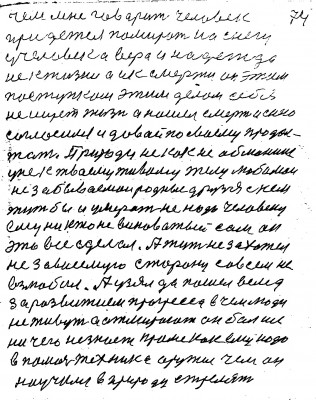 чем мне говорит человек 74
придется помират на снегу
у человека вера и надежда
не к жизни а к смерти он этим
поступком этим делом себе
не ищет жизн а нашел смерт и ево
согласился и давай по своему продол-
жат. Природу некак не обманиш
уже к твоему живому телу любимои
незабываемои родные друзя с кем
жит бы и умерат не надо человеку
ему никто не виноватый сам он
это все сделал. А тут не захотел
независемую сторону совсем не
взлюбил. А узял да пошел вслед
за развитием прогресса в чем люди
не живут а
ни чего не знает кроме как ему надо
в помощ техника оружие чем он
научился в природу стрелят